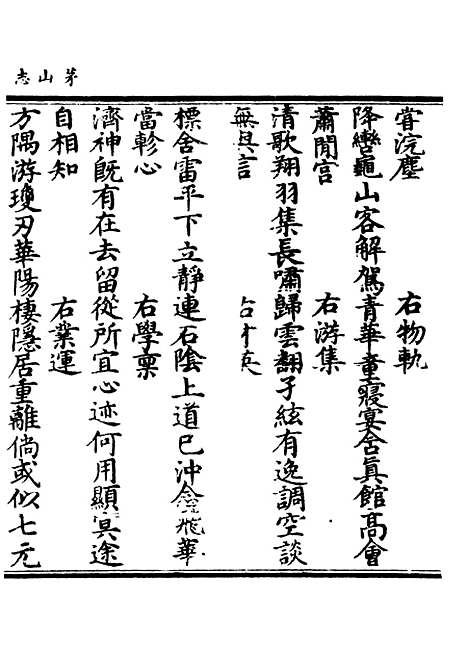 茅山志
甞浣塵　右物軌
降轡龜山客解駕青華童寢宴舍眞館高會
蕭閒宮　右游集
清歌翔羽集長嘯歸雲翻孑絃有逸調空談
無與言　右才英
標舍雷平下立靜連石陰上道已沖飛華
當軫心　右學稟
濟神既有在去留從所宜心迹何用顯冥途
自相知　右業運
方隅游瓊刃華陽棲隱居重離倘或似七元